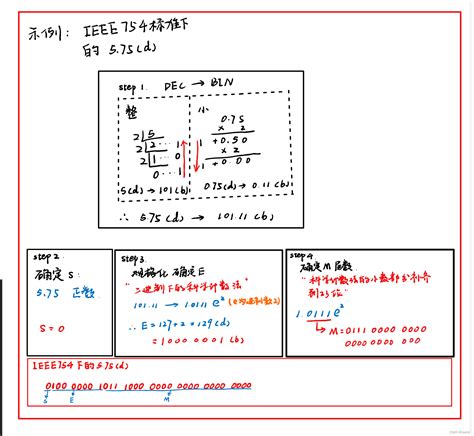 示例: IEEE754标准下
的 5.75(d)
step 1. DEC → BIN
整
2 5
2 2 ··· 1
2 1 ··· 0
0 ··· 1
5(d) → 101(b)
小
0.75
× 2
1 +0.50
× 2
1 +0.00
0.75(d) → 0.11(b)
∴ 5.75(d) → 101.11(b)
step 2
确定 S:
5.75 正数
S = 0
step 3
规格化 确定E
"二进制下的科学计数法"
101.11 → 1.0111 e²
∴ E = 127+2 = 129(d)
= 1000 0001 (b)
step 4
确定M 尾数
1.0111 e²
→ M=0111 0000 0000
0000 0000 000
IEEE754下的5.75(d)
0100 0000 1011 1000 0000 0000 0000 0000
S E M